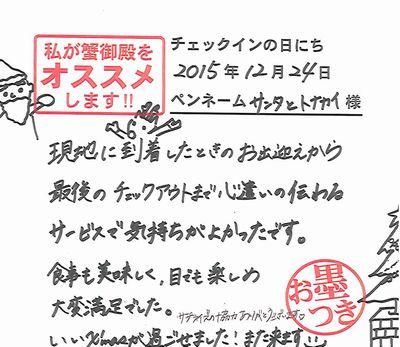 私が蟹御殿を
オススメ
します!!
チェックインの日にち
2015年12月24日
ペンネーム サンタとトナカイ 様
現地に到着したときのお出迎えから
最後のチェックアウトまで心遣いの伝わる
サービスで気持ちがよかったです。
食事も美味しく、目でも楽しめ
大変満足でした。
サプライズの協力ありがとうございます。
いいXmasが過ごせました！また来ます
墨
おつき